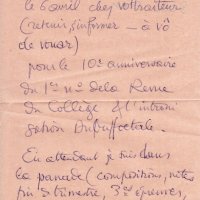 le 6 avril chez votre traiteur
(retenir, s'informer — à vô
de vouar)
pour le 10e anniversaire
du 1er n° de la Revue
du Collège & l'introni
sation Dubuffetale.
En attendant je suis dans
la panade (compositions, notes,
fin d trimestre, 3es épreuves,